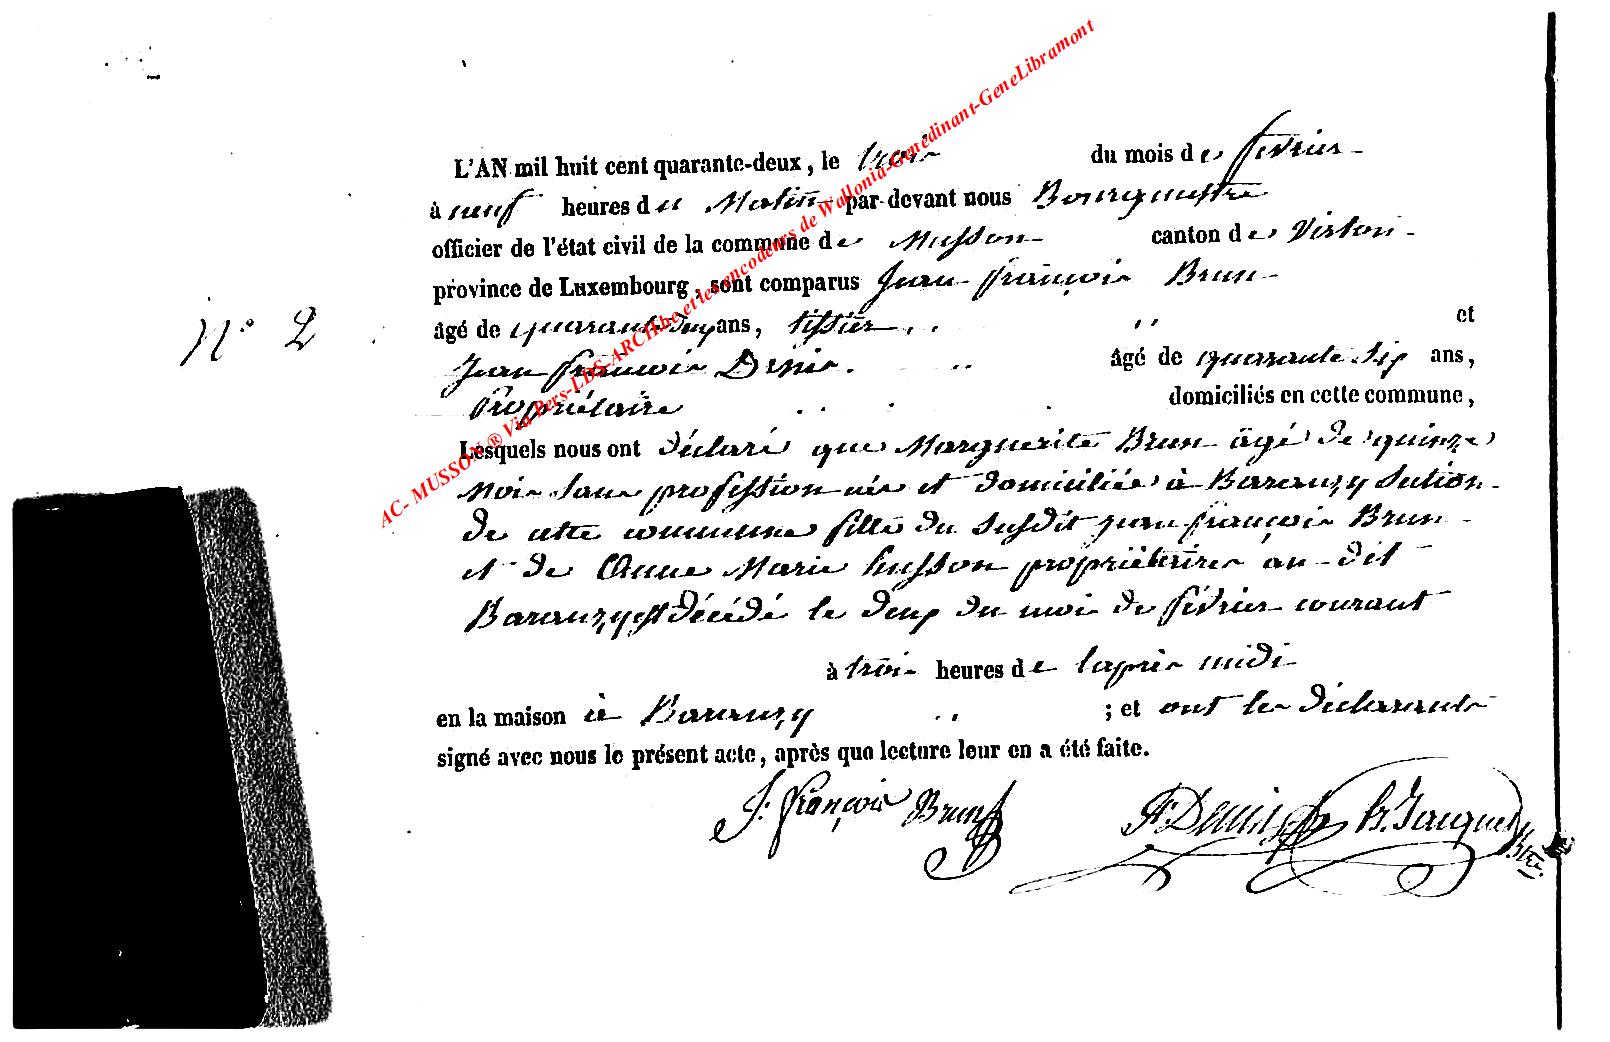 L'AN mil huit cent quarante-deux, le trois du mois de février
à neuf heures du Matin par-devant nous Bourgmestre
officier de l'état civil de la commune de Musson canton de Virton
province de Luxembourg, sont comparus Jean françois Brun
N° 2
âgé de quarante deux ans, tissier et
Jean françois Denis. âgé de quarante six ans,
Propriétaire domiciliés en cette commune,
Lesquels nous ont déclaré que Marguerite Brun âgé de quinze
Mois sans profession née et domiciliée à Baranzy Section
de cette commune fille du susdit jean françois Brun
et de Anne Marie husson propriétaires au dit
Baranzy est décédé le deux du moi de février courant
à trois heures de laprès midi
en la maison à Baranzy ; et ont les déclarants
signé avec nous le présent acte, après que lecture leur en a été faite.
J. françois Brun F. Denis h. Jacques
AC- MUSSON ® Via Pers-LDS-ARCHbe et les encodeurs de Wallonia-Genedinant-GeneLibramont